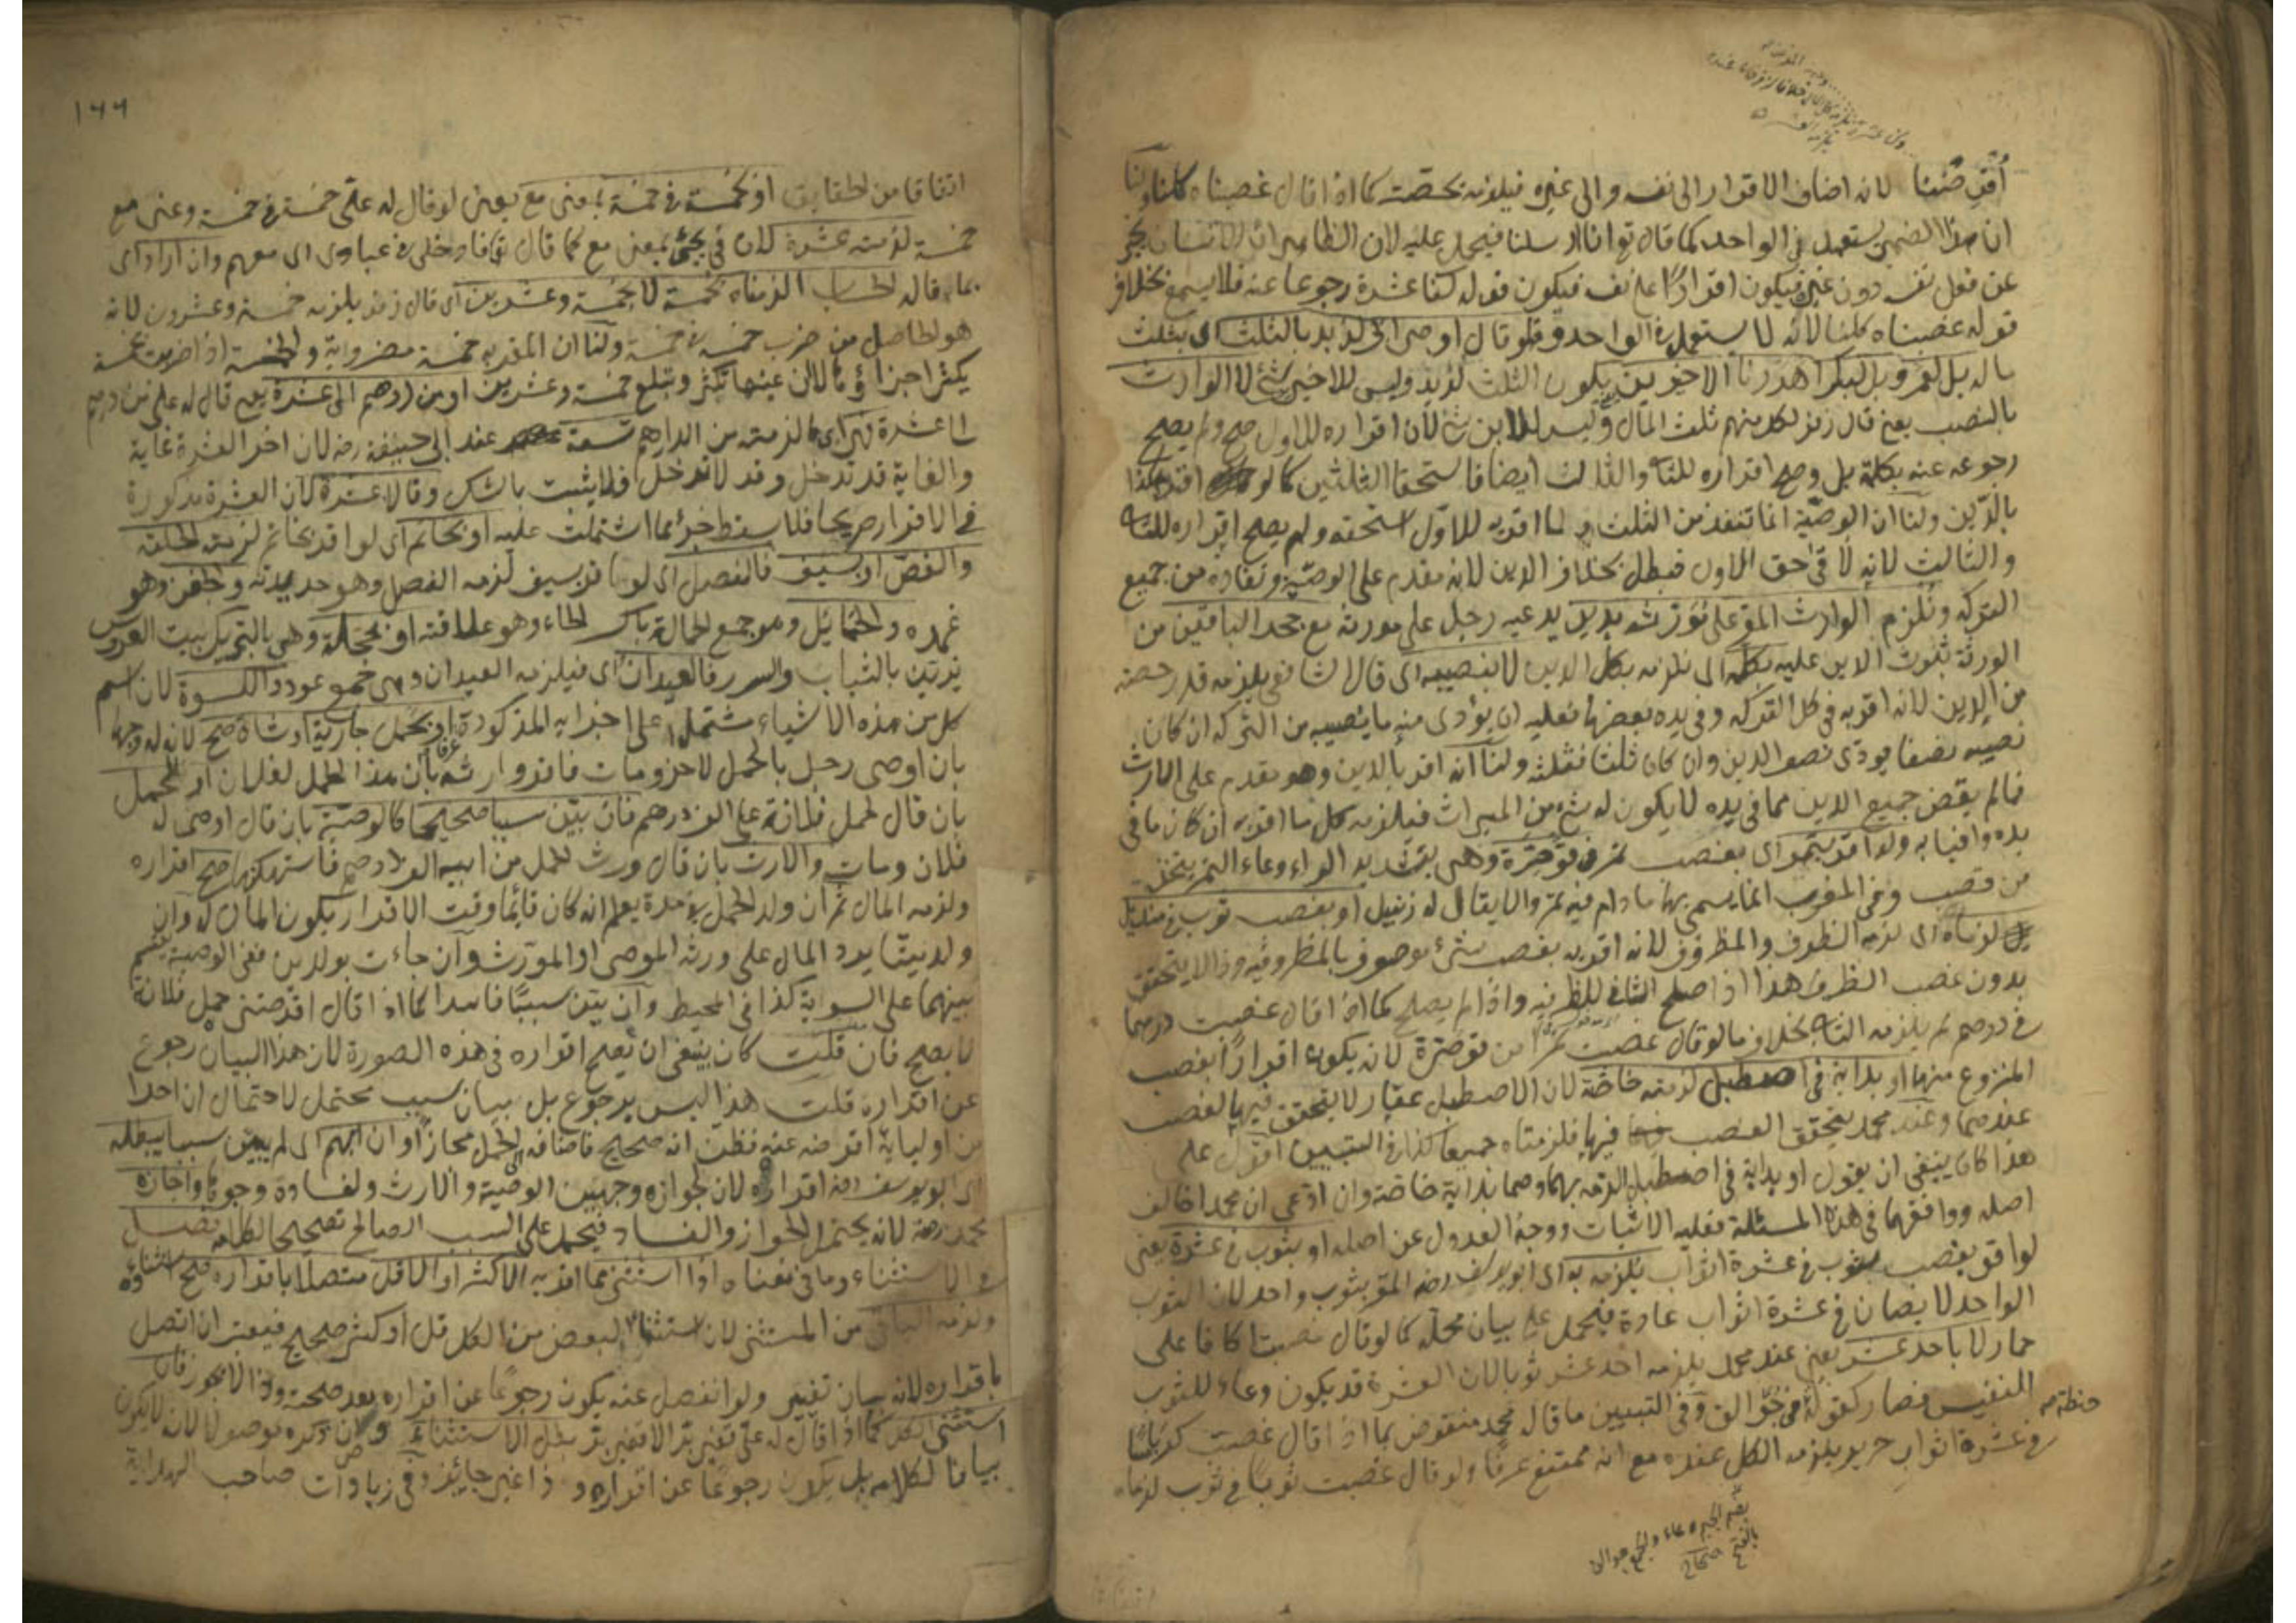 أقرضتنا لانه اضاف الاقرار الى نفسه والى غيره فيلزمه بحصته كما اذا قال غصبناه كلنا ولنا
ان هذا الضمير يستعمل في الواحد كما قال تع انا ارسلنا فيحمل عليه لان الظاهر ان الانسان يخبر
عن فعل نفسه دون غيره فيكون اقرارا على نفسه فيكون قوله كنا عشرة رجوعا عنه فلا يسمع بخلاف
قوله غصبناه كلنا لانه لا يستعمل في الواحد ولو قال اوصى ابي لزيد بالثلث اي بثلث
ماله بل لعمرو بل لبكر اهدرنا الاخيرين يكون الثلث لزيد وليس للاخيرين شئ لا الوارث
بالنصب يعني قال زفر لكل منهم ثلث المال وليس للابن شئ لان اقراره للاول صح ولم يصح
رجوعه عنه بكلمة بل وصح اقراره للثاني والثالث ايضا فاستحقا الثلثين كما لو اقر هكذا
بالدين ولنا ان الوصية انما تنفذ من الثلث ولما اقر به للاول استحقه ولم يصح اقراره للثاني
والثالث لانه لاقى حق الاول فبطل بخلاف الدين لانه مقدم على الوصية ونفاذه من جميع
التركة ونلزم الوارث المقر على مورثه بدين يدعيه رجل على مورثه مع جحد الباقين من
الورثة ثبوت الدين عليه بكله اي نلزمه بكل الدين لا بنصيبه اي قال الشافعي يلزمه قدر حصته
من الدين لانه اقر به في كل التركة وفي يده بعضها فعليه ان يؤدى منه ما يصيبه من التركة ان كان
نصيبه نصفا يودى نصف الدين وان كان ثلثا فثلثه ولنا انه اقر بالدين وهو مقدم على الارث
فما لم يقض جميع الدين مما في يده لا يكون له شئ من الميراث فيلزمه كل ما اقر به ان كان ما في
يده وافيا به ولو اقر بتمر اي بغصب تمر في قوصرة وهي بتشديد الراء وعاء التمر يتخذ
من قصب وفي المغرب انما يسمى بها ما دام فيه تمر والا يقال له زنبيل او بغصب ثوب في منديل
لزماه اي لزمه الظرف والمظروف لانه اقر به بغصب شئ موصوف بالمظروفية وذا لا يتحقق
بدون غصب الظرف هذا اذا صلح الثاني للظرفية واذا لم يصلح كما اذا قال غصبت درهما
في درهم لم يلزمه الثاني بخلاف ما لو قال غصبت تمرا من قوصرة لانه يكون اقرارا بغصب
المنزوع منها او بدابة في اصطبل لزمته خاصة لان الاصطبل عقار لا يتحقق فيها الغصب
عندهما وعند محمد يتحقق الغصب فيها فلزمتاه جميعا كذا في التبيين اقول على
هذا كان ينبغي ان يقول او بدابة في اصطبل الزمه بهما وهما بدابة خاصة وان ادعى ان محمدا خالف
اصله ووافقهما في هذه المسئلة فعليه الاثبات ووجه العدول عن اصله او بثوب في عشرة يعني
لو اقر بغصب ثوب في عشرة اثواب يلزمه به اي ابو يوسف رحمه المقر بثوب واحد لان الثوب
الواحد لا يصان في عشرة اثواب عادة فيحمل على بيان محله كما لو قال غصبت اكافا على
حمار لا باحد عشر يعني عند محمد يلزمه احد عشر ثوبا لان العشرة قد يكون وعاء للثوب
النفيس فصار كقوله في جوالق وفي التبيين ما قال محمد منقوض بما اذا قال غصبت كرباسا
في عشرة اثواب حرير يلزمه الكل عنده مع انه ممتنع عرفا ولو قال غصبت ثوبا في ثوب لزماه
حنطة صح
بضم الجيم وعاء والجمع جوالق
بالفتح صحاح
١٦٦
اتفاقا من الحقايق او بخمسة في خمسة بمعنى مع يعني لو قال له على خمسة في خمسة وعنى مع
خمسة لزمته عشرة لان في يجئ بمعنى مع كما قال تع فادخلي في عبادي اي معهم وان اراد اي
بما قاله الحساب الزمناه بخمسة لا بخمسة وعشرين اي قال زفر يلزمه خمسة وعشرون لانه
هو الحاصل من ضرب خمسة في خمسة ولنا ان المقر به خمسة مضروبة والخمسة اذا ضربت بخمسة
يكثر اجزاؤها لا ان عينها تكثر وتبلغ خمسة وعشرين او من درهم الى عشرة يعني قال له على من درهم
الى عشرة فهي اي ما لزمته من الدراهم تسعة عند ابي حنيفة رحه لان اخر العشرة غاية
والغاية قد تدخل وقد لا تدخل فلا يثبت بالشك وقالا عشرة لان العشرة مذكورة
في الاقرار صريحا فلا يسقط جزء مما اشتملت عليه او بخاتم اي لو اقر بخاتم لزمته الحلقة
والفص او بسيف فالنصل اي لو اقر بسيف لزمه النصل وهو حديدته والجفن وهو
غمده والحمائل وهو جمع الحمالة بكسر الحاء وهو علاقته او بحجلة وهي بالتحريك بيت العروس
يزين بالثياب والسرر فالعيدان اي فيلزمه العيدان وهي جمع عود والكسوة لان اسم
كل من هذه الاشياء مشتمل على اجزائه المذكورة او بحمل جارية او شاة صح لان له وجها
بان اوصى رجل بالحمل لاخر ومات فاقر وارثه بان هذا الحمل لفلان او لحمل
بان قال لحمل فلانة علي الف درهم فان بين سببا صحيحا كالوصية بان قال اوصى له
فلان ومات والارث بان قال ورث الحمل من ابيه الف درهم فاستهلكتها صح اقراره
ولزمه المال ثم ان ولد الحمل في مدة يعلم انه كان قائما وقت الاقرار يكون المال له وان
ولد ميتا يرد المال على ورثة الموصى او المورث وان جاءت بولدين ففي الوصية يقسم
بينهما على السوية كذا في المحيط وان بين سببا فاسدا كما اذا قال اقرضتني حمل فلانة
لا يصح فان قلت كان ينبغي ان يصح اقراره في هذه الصورة لان هذا البيان رجوع
عن اقراره قلت هذا ليس برجوع بل بيان سبب محتمل لاحتمال ان احدا
من اوليائه اقرضه عنه فظن انه صحيح فاضافه الى الحمل مجازا وان ابهم اي لم يبين سببا يبطله
اي ابو يوسف رحه اقراره لان لجوازه وجهين الوصية والارث ولفساده وجوها واجازه
محمد رحه لانه يحتمل الجواز والفساد فيحمل على السبب الصالح تصحيحا لكلامه فصل
في الاستثناء وما في معناه اذا استثنى مما اقر به الاكثر او الاقل متصلا باقراره صح استثناؤه
ولزمه الباقي من المستثنى لان استثناء البعض من الكل قل او كثر صحيح فيعتبر ان اتصل
باقراره لانه بيان تغيير ولو انفصل عنه يكون رجوعا عن اقراره بعد صحته وذا لا يجوز فان
استثنى الكل كما اذا قال له على قفيز بر الا قفيز بر بطل الاستثناء وان ذكره موصولا لانه لا يكون
بيانا لكلامه بل يكون رجوعا عن اقراره وذا غير جائز وفي زيادات صاحب الهداية